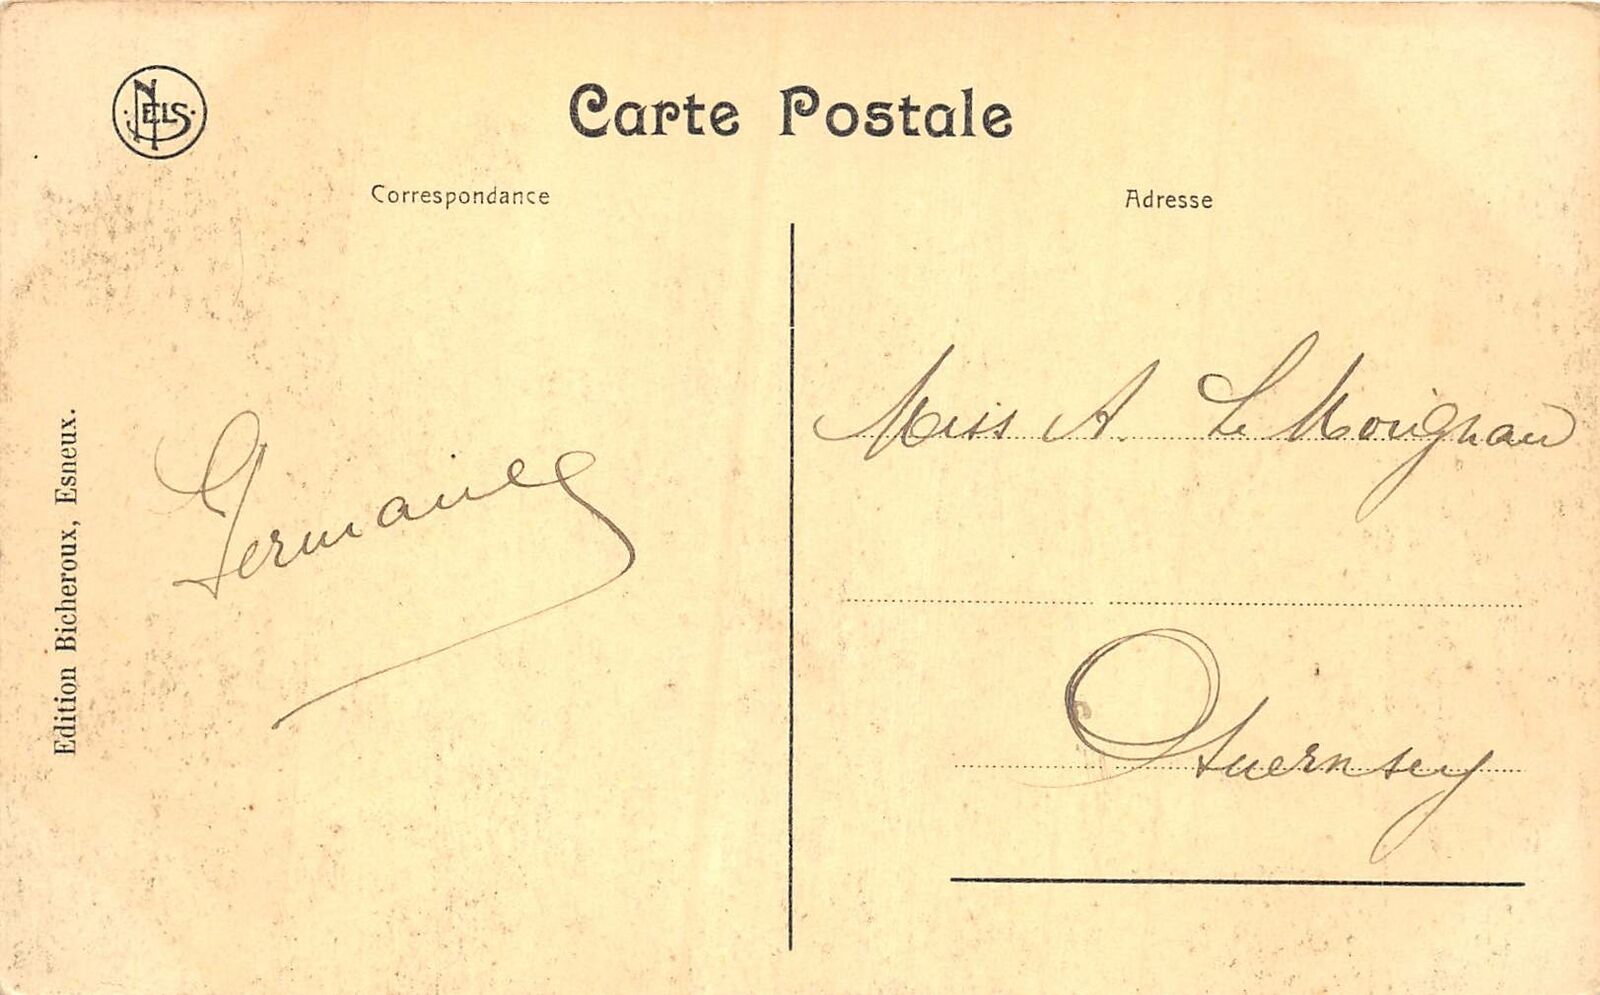 NELS
Carte Postale
Correspondance
Adresse
Edition Bicheroux, Esneux.
Germaine
Miss A. Le
Guernsey